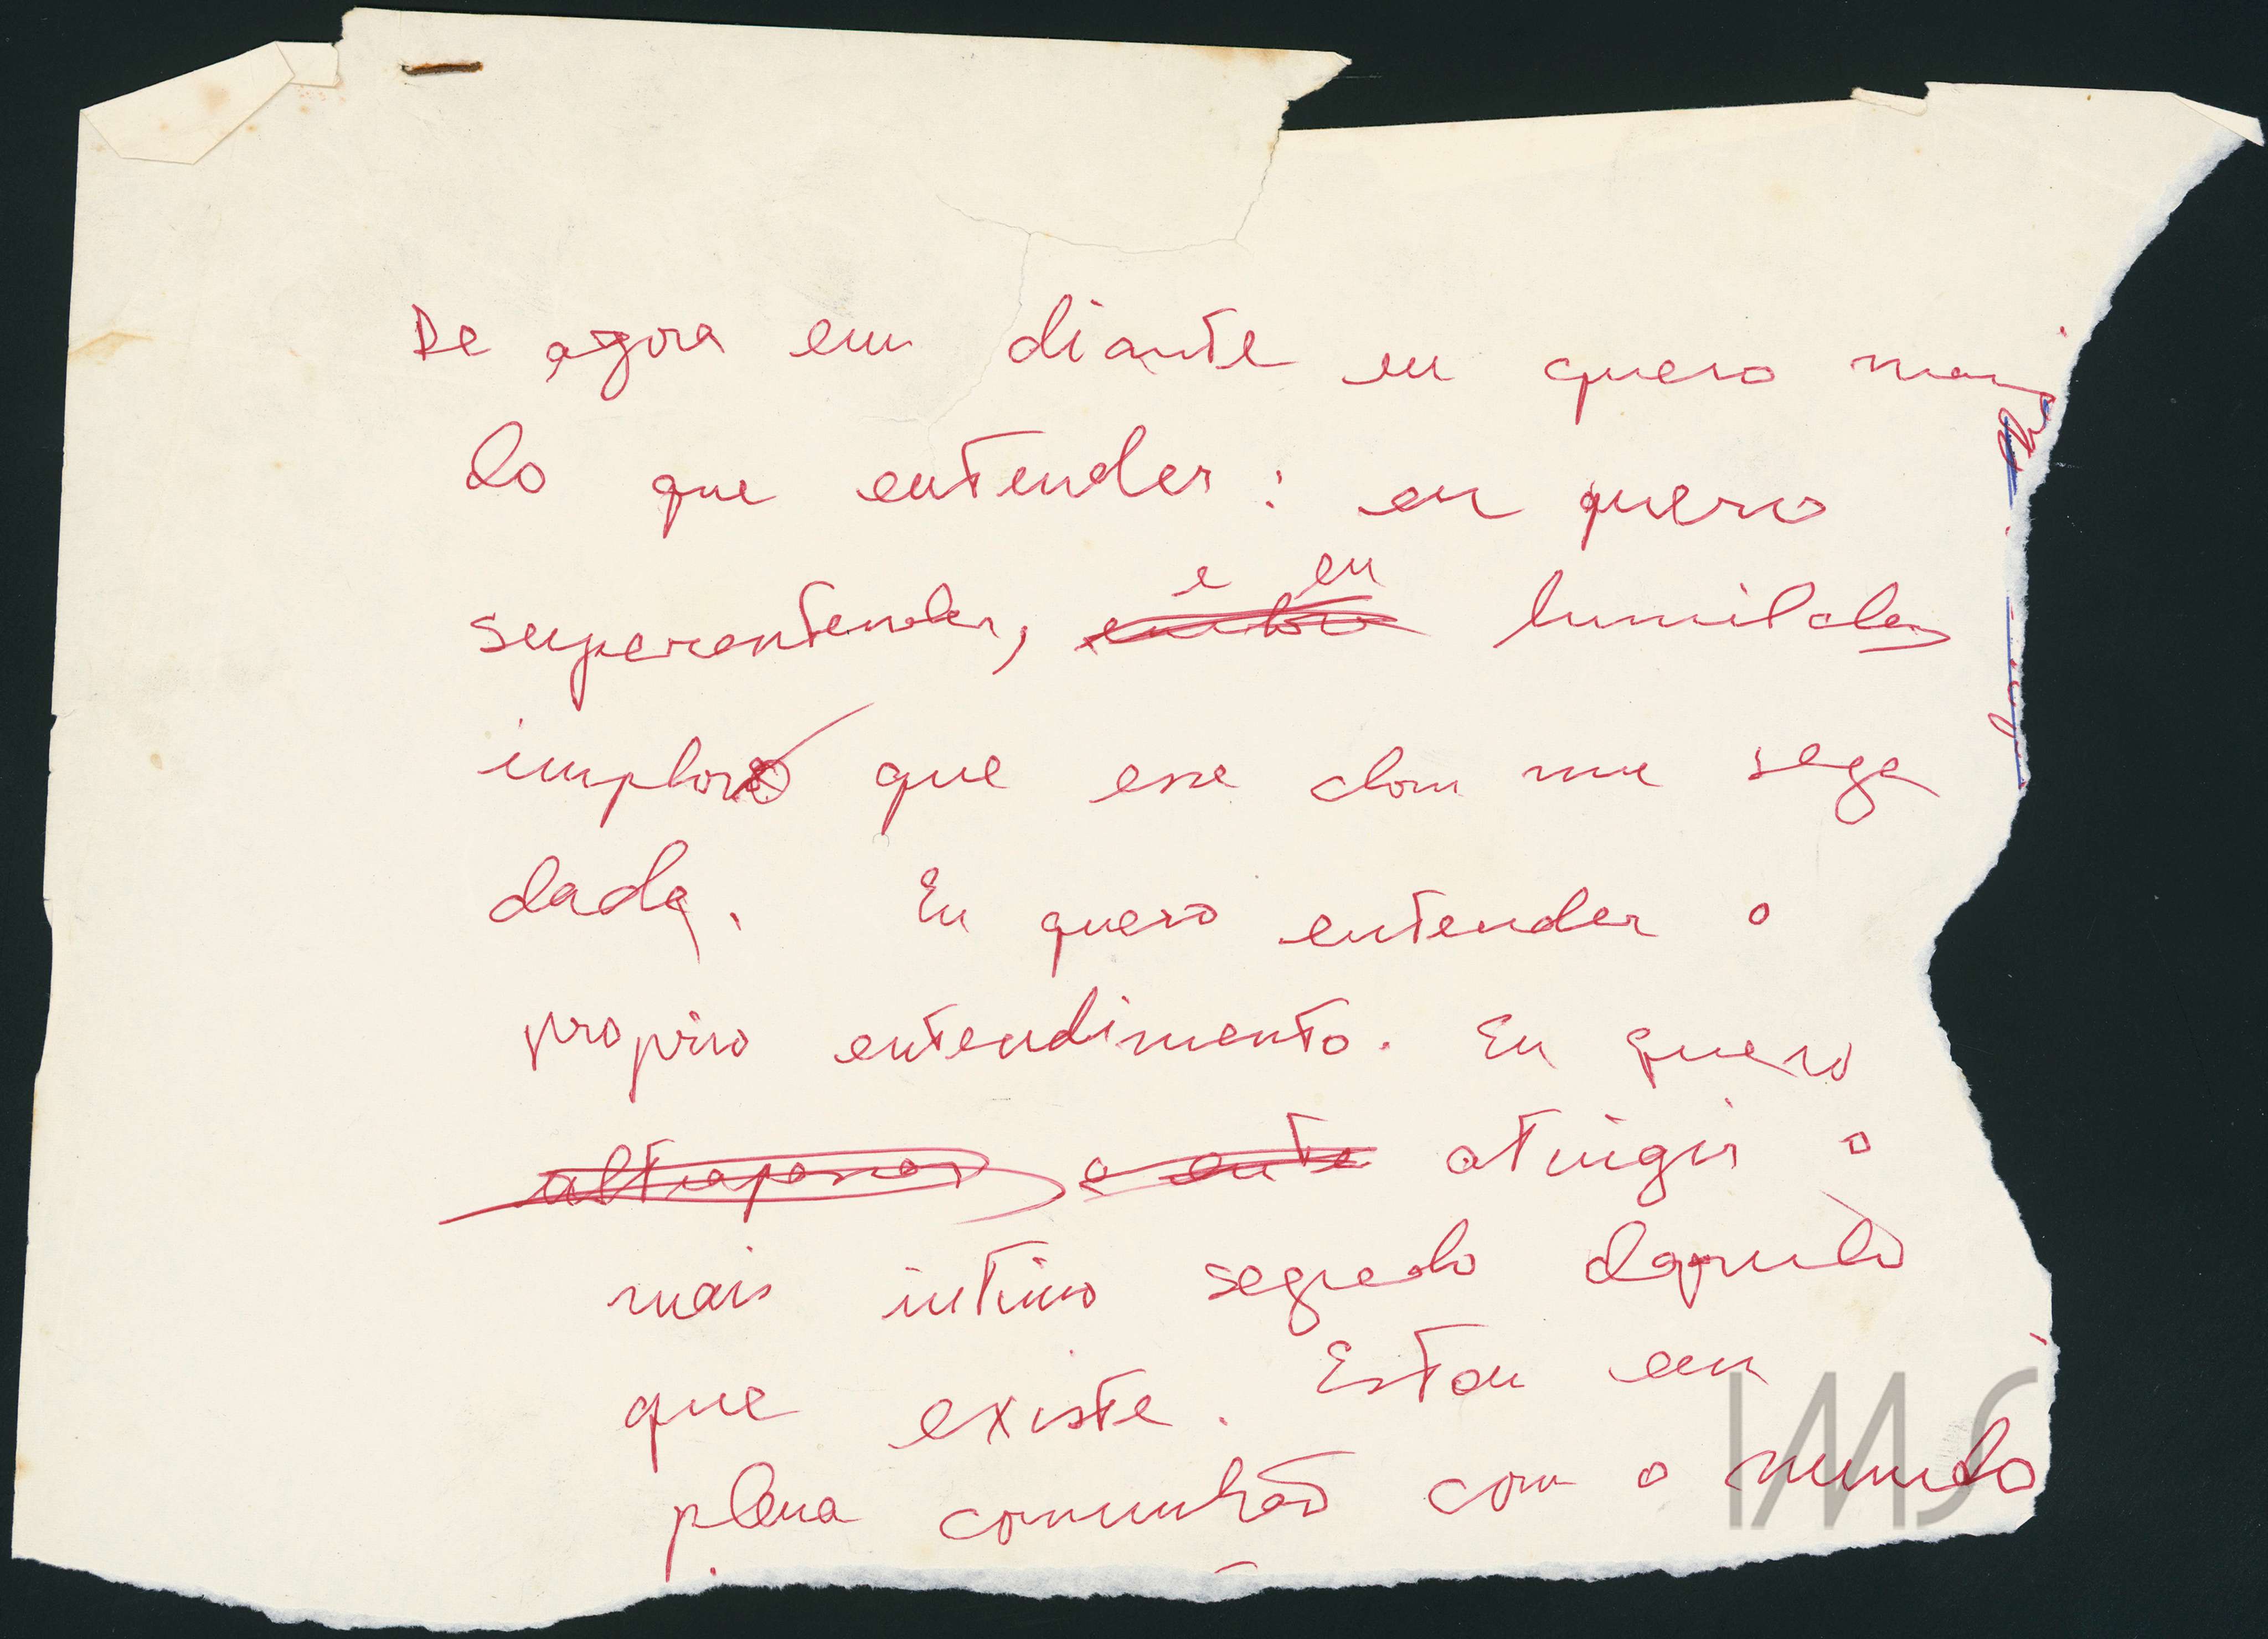 De agora em diante eu quero mais
do que entender: eu quero
e eu
superentender, humildemente
imploro que esse dom me seja
dado. Eu quero entender o
proprio entendimento. Eu quero
ultrapassar o ente atingir o
mais intimo segredo daquilo
que existe. Estou em
plena comunhão com o mundo
IMS